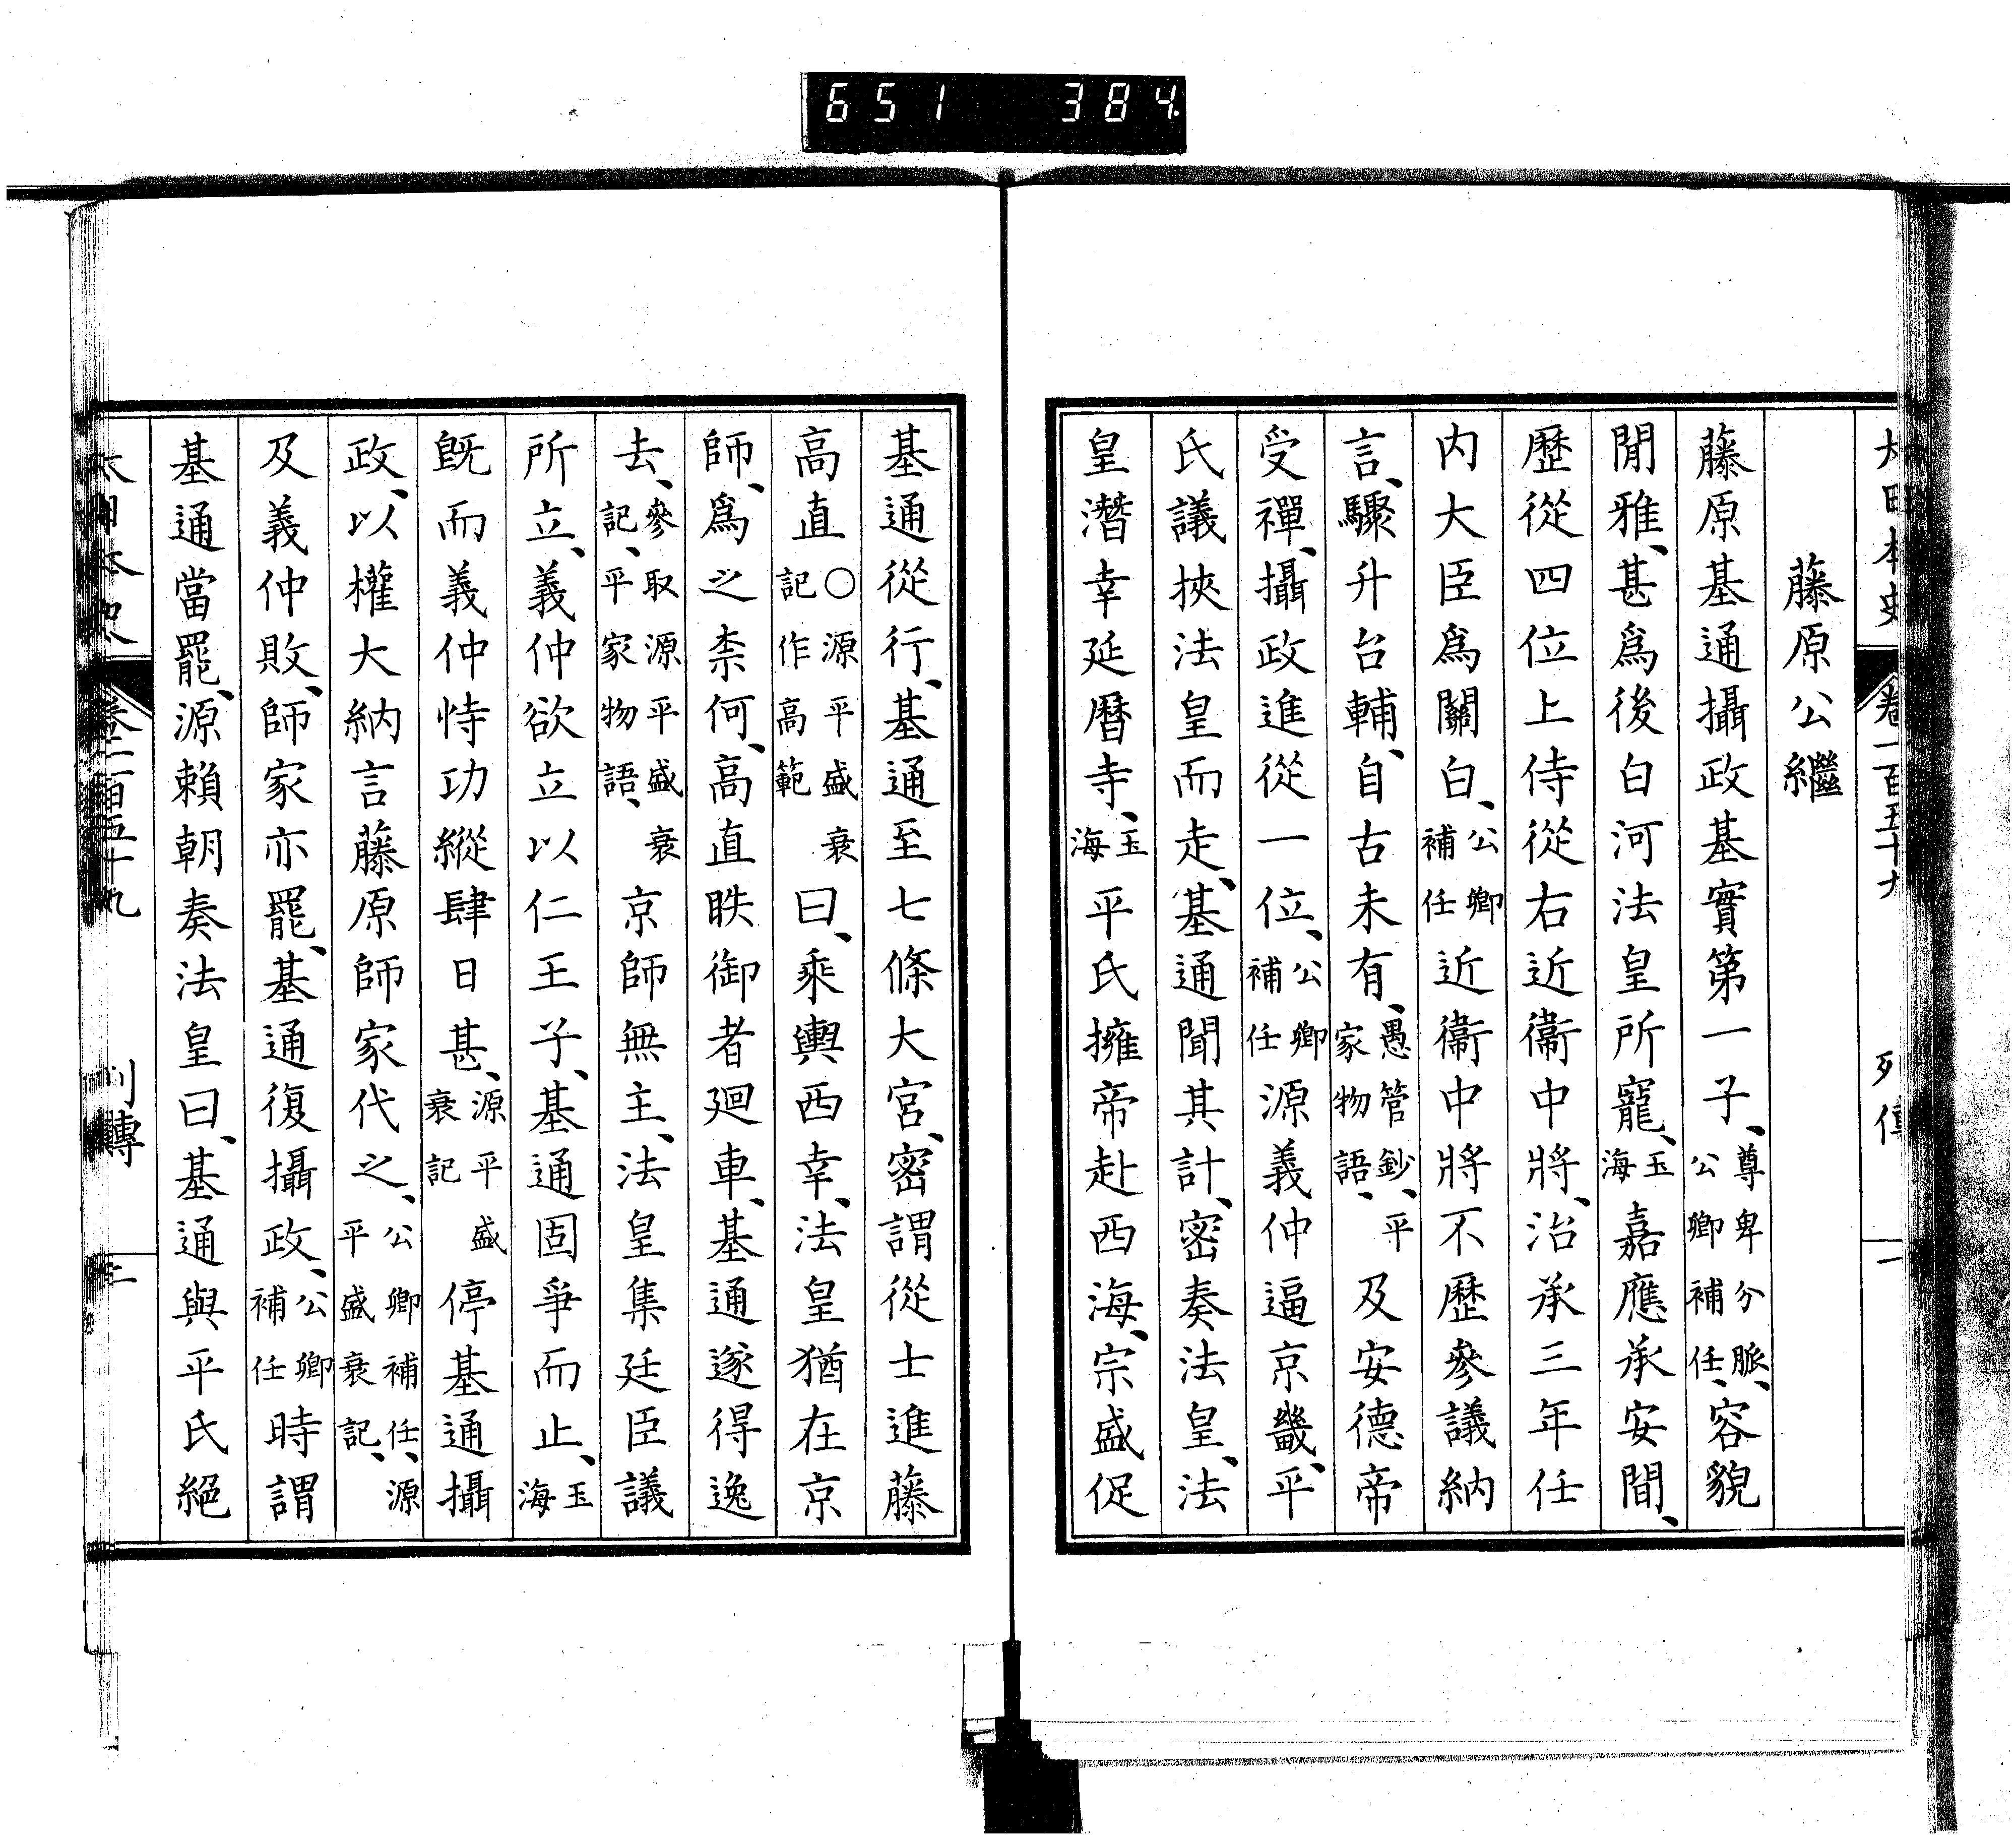 651 384
大日本史 卷一百五十九 列傳 一
藤原公繼
藤原基通攝政基實第一子、尊卑分脈、公卿補任、容貌
閒雅、甚爲後白河法皇所寵、玉海嘉應承安間、
歷從四位上侍從右近衞中將、治承三年任
内大臣爲關白、公卿補任近衞中將不歷參議納
言、驟升台輔、自古未有、愚管鈔、平家物語、及安德帝
受禪、攝政進從一位、公卿補任源義仲逼京畿、平
氏議挾法皇而走、基通聞其計、密奏法皇、法
皇潛幸延曆寺、玉海平氏擁帝赴西海、宗盛促
基通從行、基通至七條大宮、密謂從士進藤
高直○源平盛衰記作高範曰、乘輿西幸、法皇猶在京
師、爲之柰何、高直眣御者廻車、基通遂得逸
去、參取源平盛衰記、平家物語、京師無主、法皇集廷臣議
所立、義仲欲立以仁王子、基通固爭而止、玉海
既而義仲恃功縱肆日甚、源平盛衰記停基通攝
政、以權大納言藤原師家代之、公卿補任、源平盛衰記、
及義仲敗、師家亦罷、基通復攝政、公卿補任時謂
基通當罷、源賴朝奏法皇曰、基通與平氏絕
大日本史 卷一百五十九 列傳 二